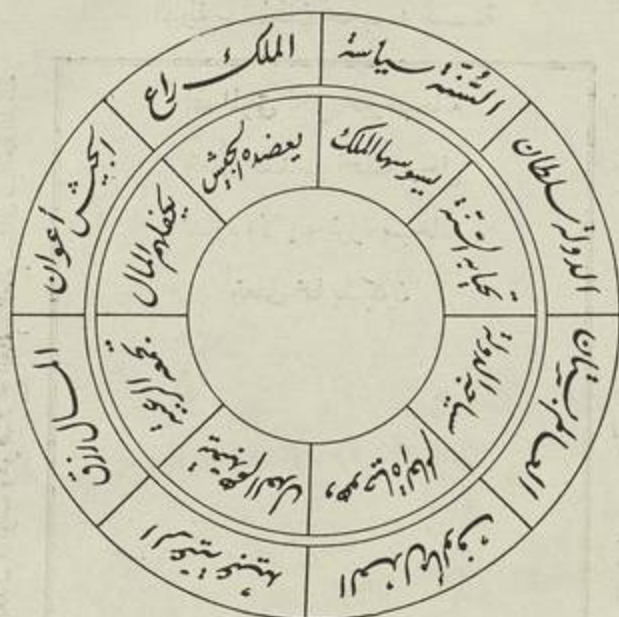 العالم بستان
سياجه الدولة
الدولة سلطان
تحيا به السنة
السُّنَّة سياسة
يسوسها الملك
الملك راع
يعضده الجيش
الجيش أعوان
يكفلهم المال
المال رزق
تجمعه الرعية
الرعية عبيد
العدل
العدل مألوف
وهو حياة العالم